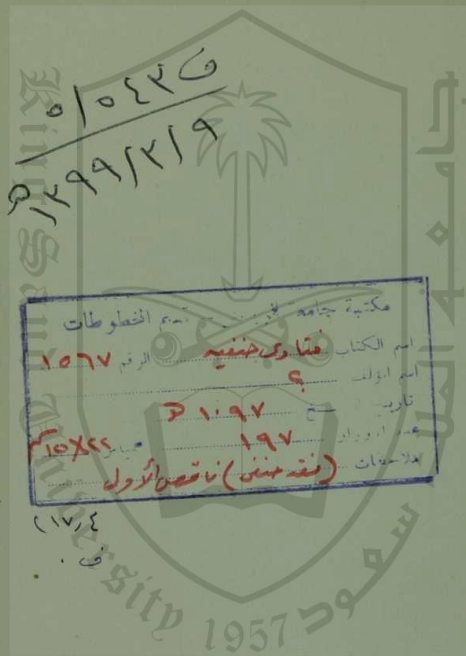 ف ٥١٥٤٣
١٣٩٩/٣/٩ هـ
مكتبة جامعة قسم المخطوطات
اسم الكتاب فتاوى حنفيه الرقم ١٥٦٧
اسم المؤلف ؟
تاريخ النسخ ١٠٩٧ هـ
عدد الأوراق ١٩٧ ١٥X٢٢ سم
ملاحظات (فقه حنفي) ناقص الأول
٢١٧٫٤
ف .
King Saud University
1957
جامعة الملك سعود